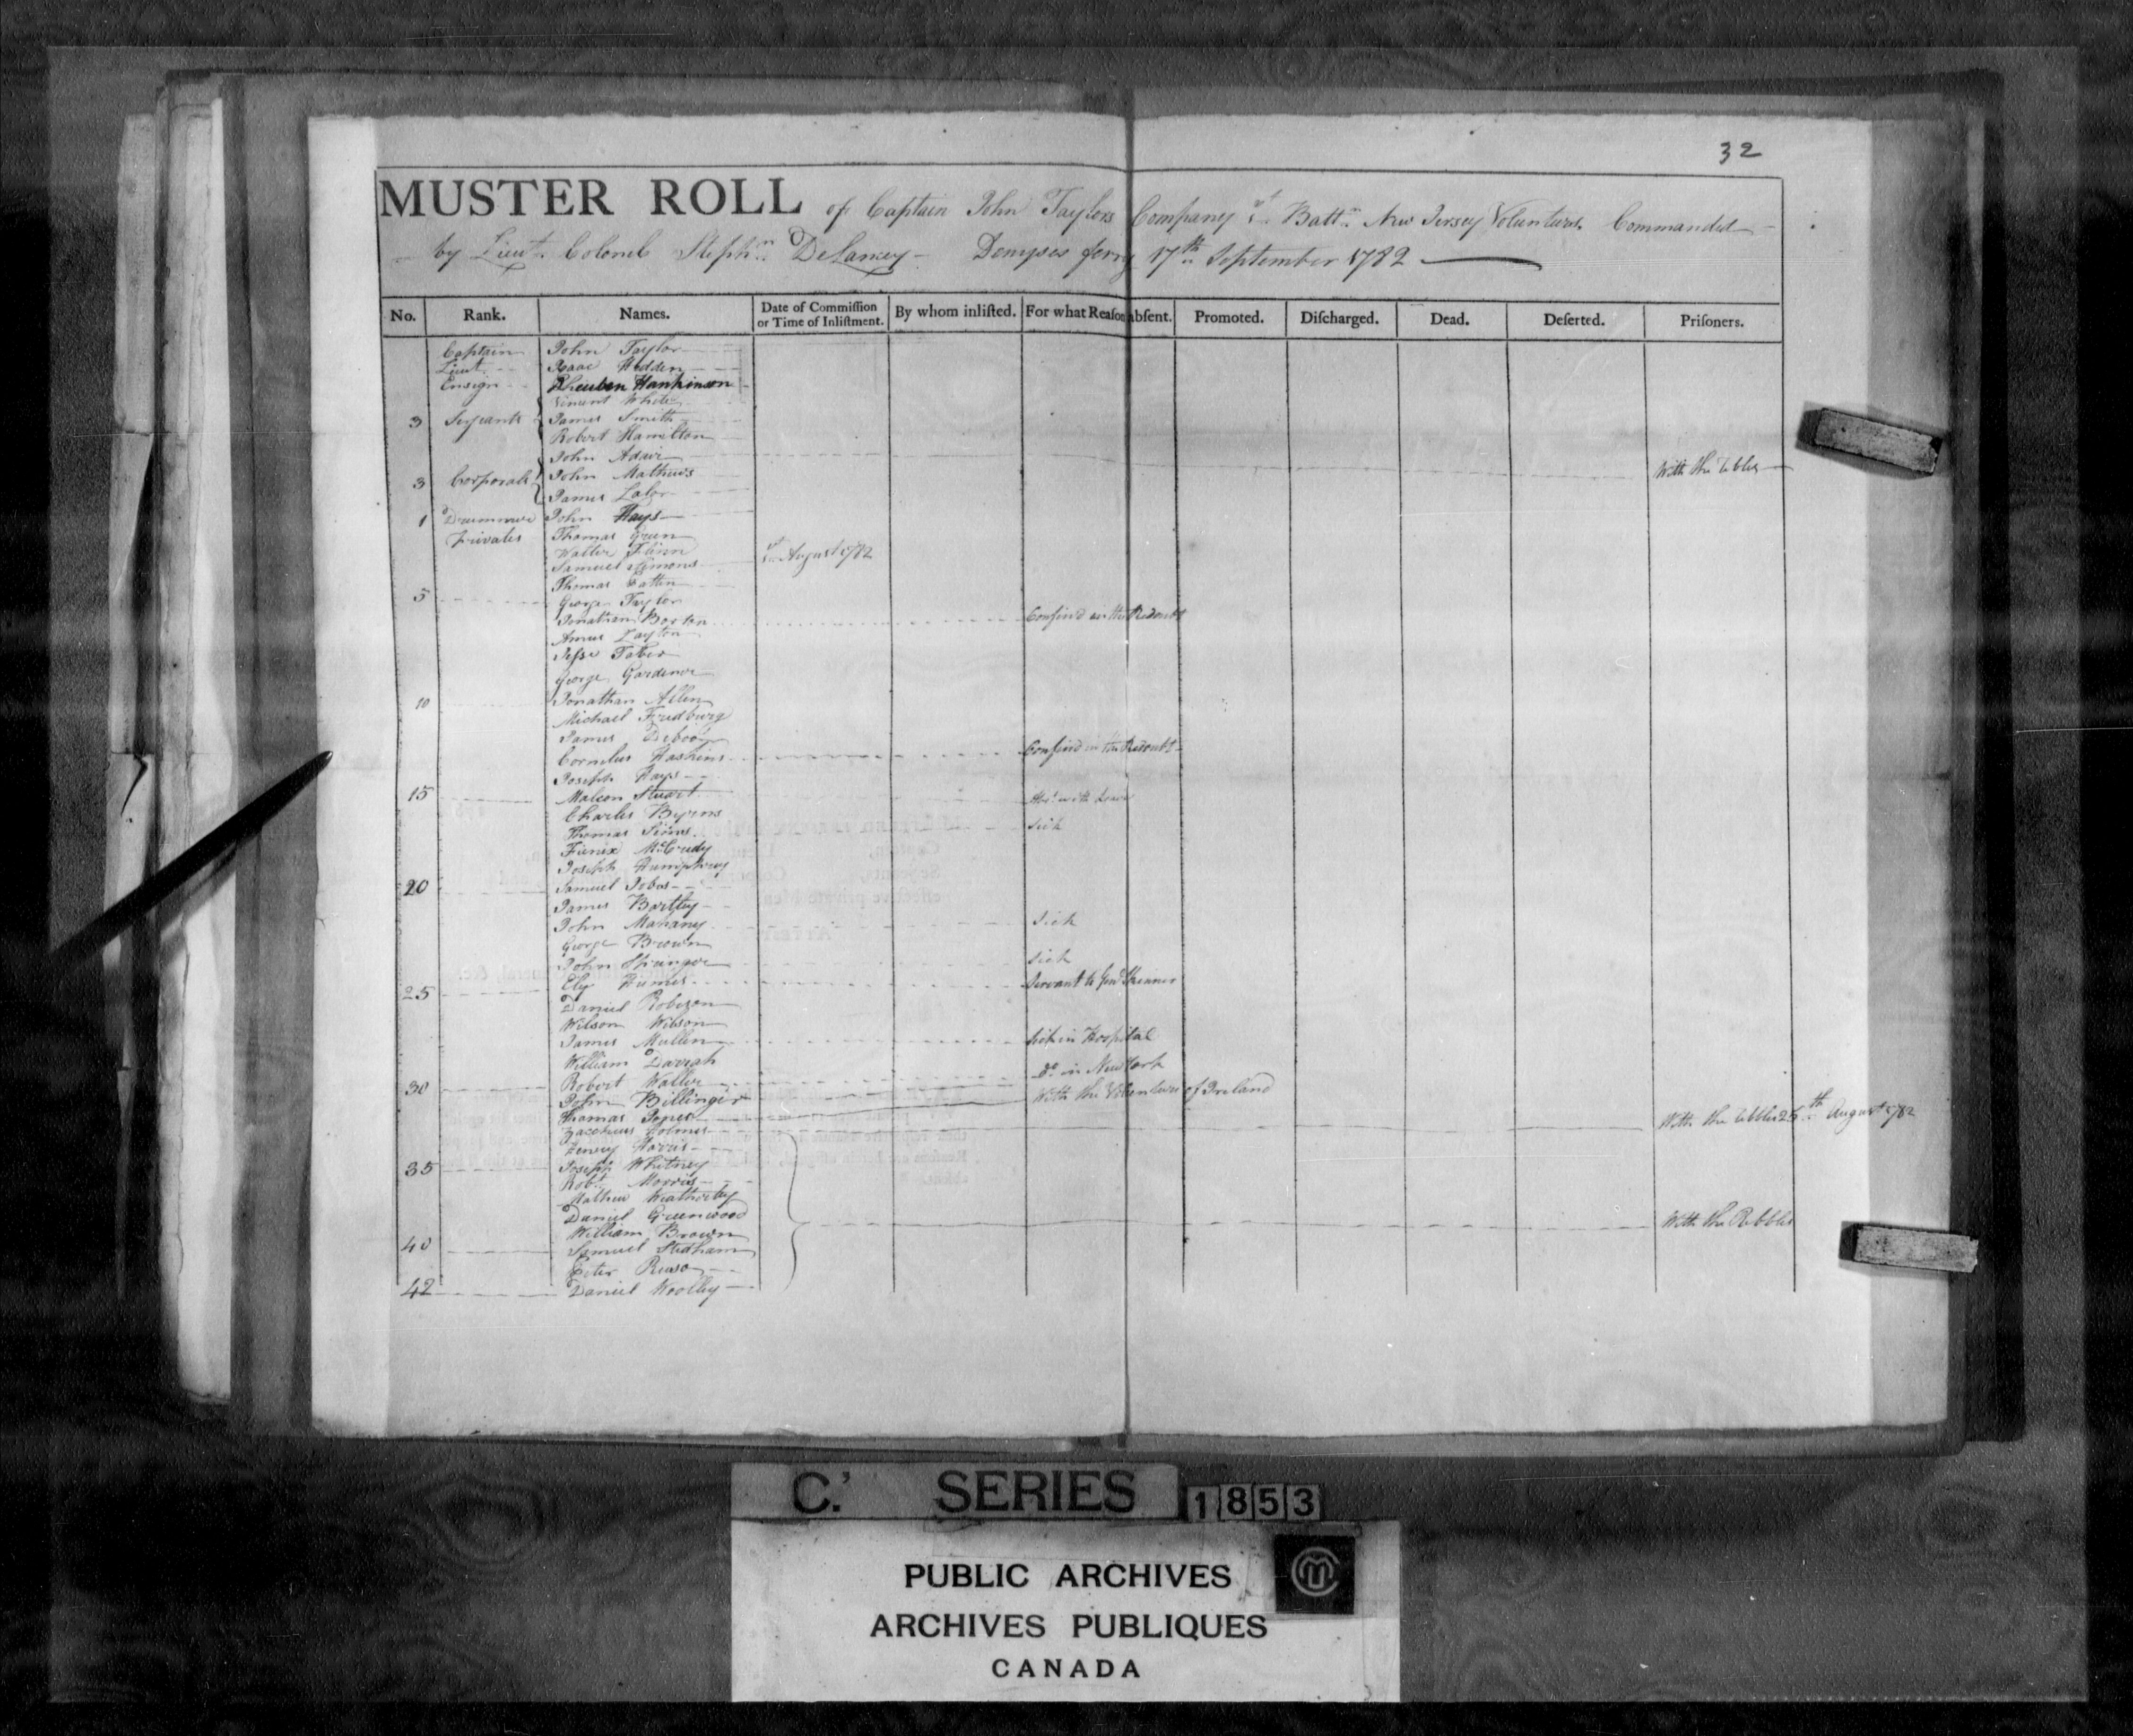 32
MUSTER ROLL of Captain John Taylors Company 1st Battn New Jersey Volunteers Commanded
by Lieut. Colonel Stephn DeLancey - Denyses ferry 17th September 1782
No. Rank. Names. Date of Commiſſion or Time of Inliſtment. By whom inliſted. For what Reaſon abſent. Promoted. Diſcharged. Dead. Deſerted. Priſoners.
Captain John Taylor
Lieut. Isaac Hedden
Ensign Rheuben Hankinson
Vincent White
3 Serjeants James Smith
Robert Hamilton
John Adair With the Rebbles
3 Corporals John Mathews
James Lalor
1 Drummer John Hays
Privates Thomas Green
Walter Flinn 1st August 1782
Samuel Symons
Thomas Patten
5 George Taylor
Jonathan Borton Confin'd in the Redoubt
Amus Layton
Jesse Tabor
George Gardener
10 Jonathan Allen
Michael Fredburg
James Deboôg
Cornelius Haskins Confin'd in the Redoubt
Joseph Hays
15 Malcom Stuart Abst. with Leave
Charles Byrens
Thomas Sims Sick
McCrudy
Joseph Humphrey
20 Samuel Jobes
James Bartley
John Mahany Sick
George Brown
John Springer Sick
25 Ely Humes Servant to Genl Skinner
Daniel Robeson
Wilson Wilson
James Mullen Sick in Hospital
William Darrah
30 Robert Waller Do. in New York
John Billinger With the Volunteers of Ireland
Thomas Jones
Zaccheus Holmes With the Rebbles 25th August 1782
Henry Norris
35 Joseph Whitney
Robt. Morris
Mathew Weatherby
Daniel Greenwood
William Brown With the Rebbles
40 Samuel Stedham
Peter Ruso
42 Daniel Woolley
C.' SERIES 1853
PUBLIC ARCHIVES
ARCHIVES PUBLIQUES
CANADA